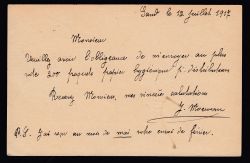 Gand le 12 juillet 1917
Monsieur
Veuillez avoir l'obligeance de m'envoyer au plus
vite 200 paquets papier hygiénique p. distributeurs
Recevez Monsieur, mes sincères salutations
P.S. J'ai reçu au mois de mai votre envoi de février.